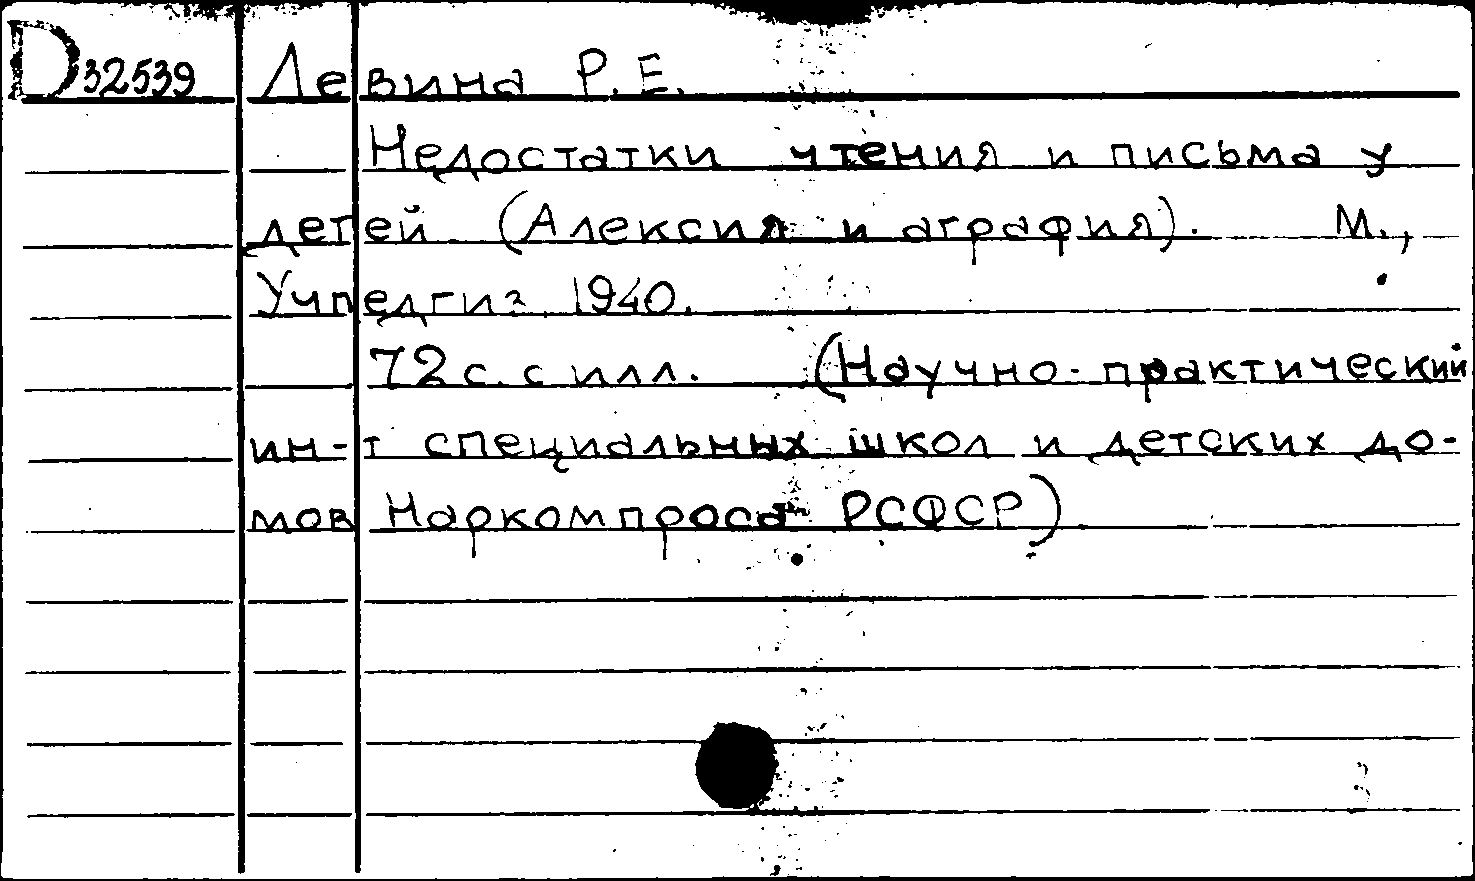 D32539 Левина Р. Е.
Недостатки чтения и письма у
детей (Алексия и аграфия). М.,
Учпедгиз 1940.
72 с. с илл. (Научно-практический
ин-т специальных школ и детских до-
мов Наркомпроса РСФСР)